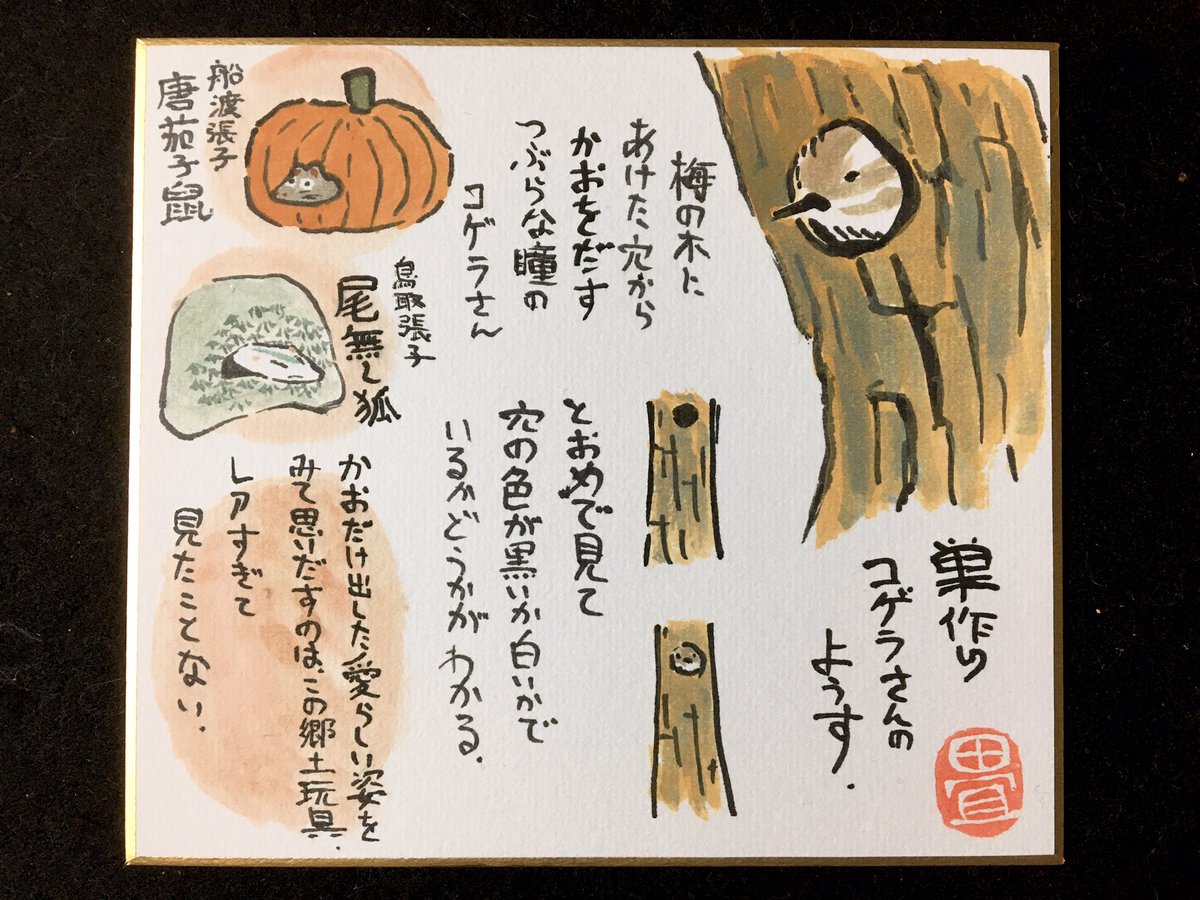 巣作り
コゲラさんの
ようす.
畳
梅の木に
あけた穴から
かおをだす
つぶらな瞳の
コゲラさん
とおめで見て
穴の色が黒いか白いかで
いるかどうかが わかる.
船渡張子
唐茄子鼠
鳥取張子
尾無し狐
かおだけ出した愛らしい姿を
みて思いだすのは、この郷土玩具.
レアすぎて
見たことない.